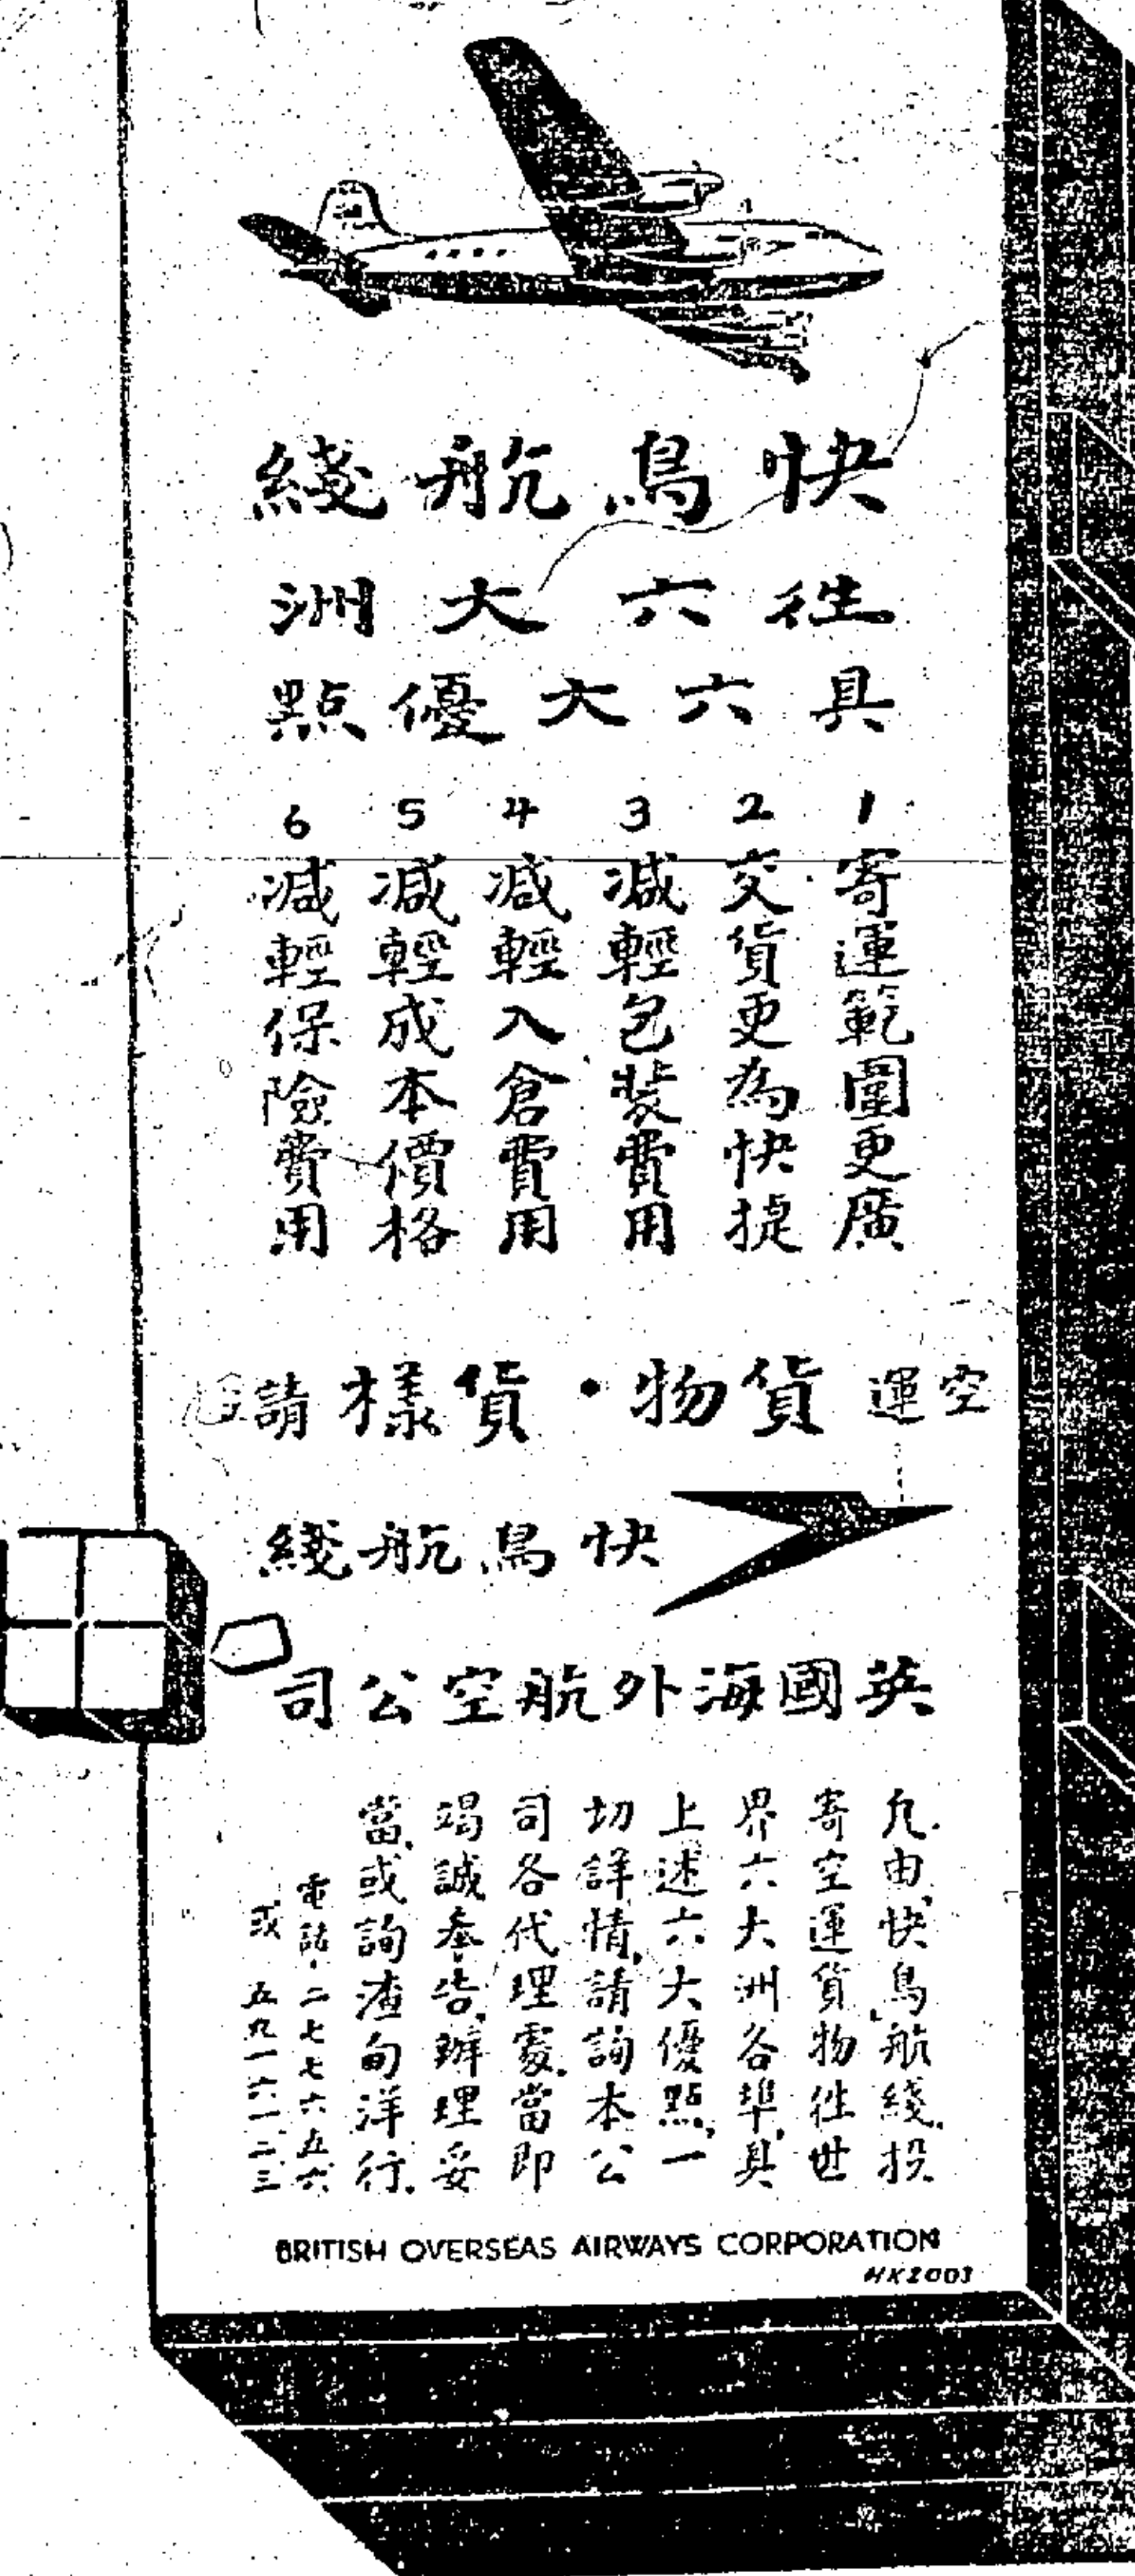 快鳥航綫
往六大洲
具六大優點
1 寄運範圍更廣
2 交貨更為快捷
3 減輕包裝費用
4 減輕入倉費用
5 減輕成本價格
6 減輕保險費用
空運貨物・貨樣請
快鳥航綫
英國海外航空公司
凡由快鳥航綫投
寄空運貨物往世
界六大洲各埠具
上述六大優點一
切詳情請詢本公
司各代理處當即
竭誠奉告辦理妥
當或詢渣甸洋行
電話二七七六五六
或五九一六一二三
BRITISH OVERSEAS AIRWAYS CORPORATION
HK2003